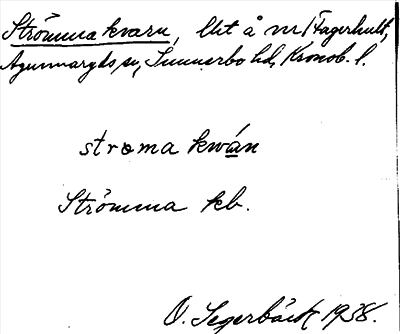 Strömma kvarn, lht å nr 1 Fagerhult,
Agunnaryds sn, Sunnerbo hd, Kronob. l.
strøma kwán
Strömma kb.
O. Segerbäck 1938.